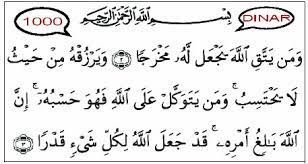 1000 بِسْمِ اللَّهِ الرَّحْمَٰنِ الرَّحِيمِ DINAR
وَمَن يَتَّقِ اللَّهَ يَجْعَل لَّهُۥ مَخْرَجًا ﴿٢﴾ وَيَرْزُقْهُ مِنْ حَيْثُ
لَا يَحْتَسِبُ ۚ وَمَن يَتَوَكَّلْ عَلَى اللَّهِ فَهُوَ حَسْبُهُۥٓ ۚ إِنَّ
اللَّهَ بَٰلِغُ أَمْرِهِۦ ۚ قَدْ جَعَلَ اللَّهُ لِكُلِّ شَىْءٍ قَدْرًا ﴿٣﴾